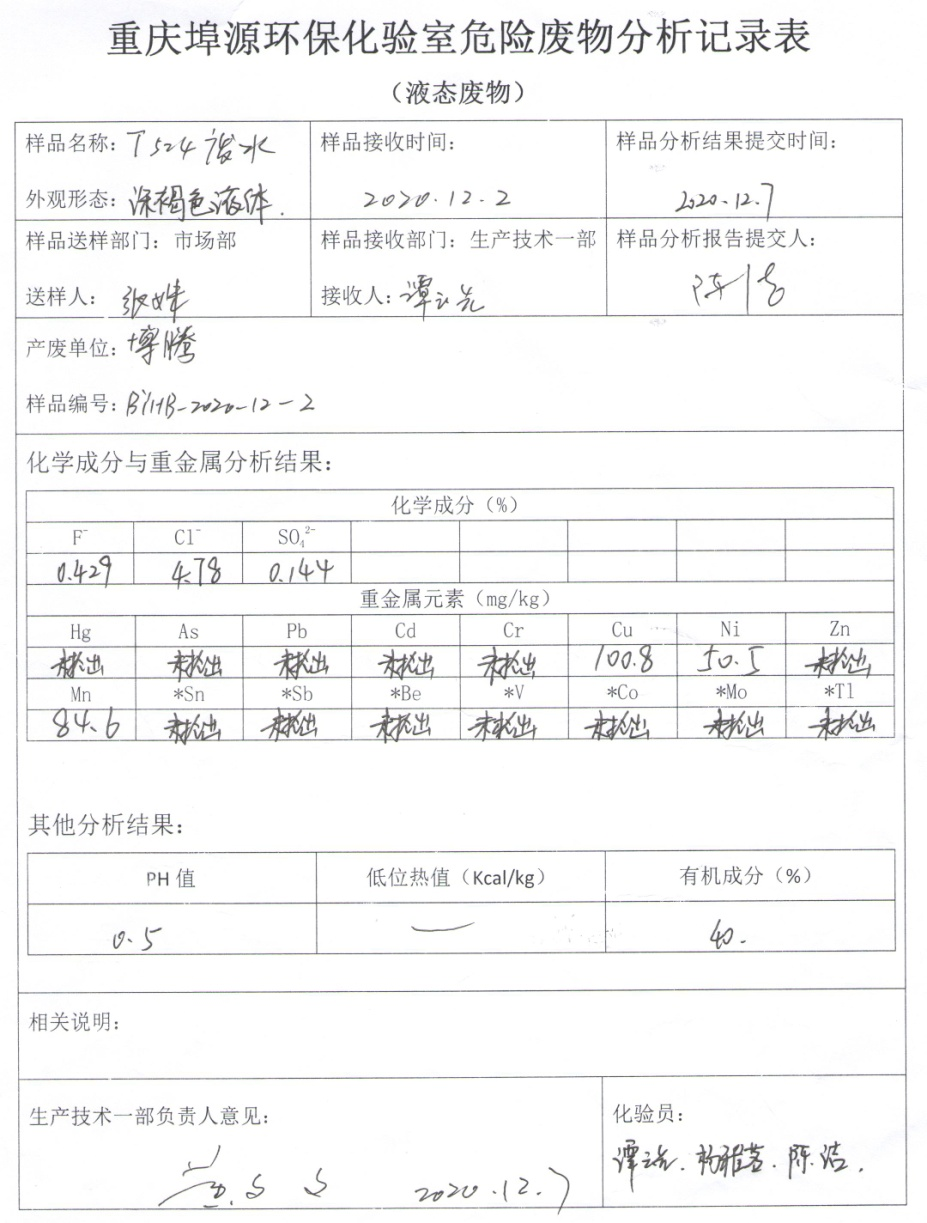 重庆埠源环保化验室危险废物分析记录表
（液态废物）
样品名称：T524废水
外观形态：深褐色液体.
样品接收时间：
2020.12.2
样品分析结果提交时间：
2020.12.7
样品送样部门：市场部
送样人：张姝
样品接收部门：生产技术一部
接收人：
样品分析报告提交人：
陈洁
产废单位：博腾
样品编号：BYHB-2020-12-2
化学成分与重金属分析结果：
化学成分（%）
F⁻ Cl⁻ SO₄²⁻
0.429 4.78 0.144
重金属元素（mg/kg）
Hg As Pb Cd Cr Cu Ni Zn
未检出 未检出 未检出 未检出 未检出 100.8 50.5 未检出
Mn *Sn *Sb *Be *V *Co *Mo *Tl
84.6 未检出 未检出 未检出 未检出 未检出 未检出 未检出
其他分析结果：
PH 值 低位热值（Kcal/kg） 有机成分（%）
0.5 — 40.
相关说明：
生产技术一部负责人意见：
2020.12.7
化验员：
陈洁.